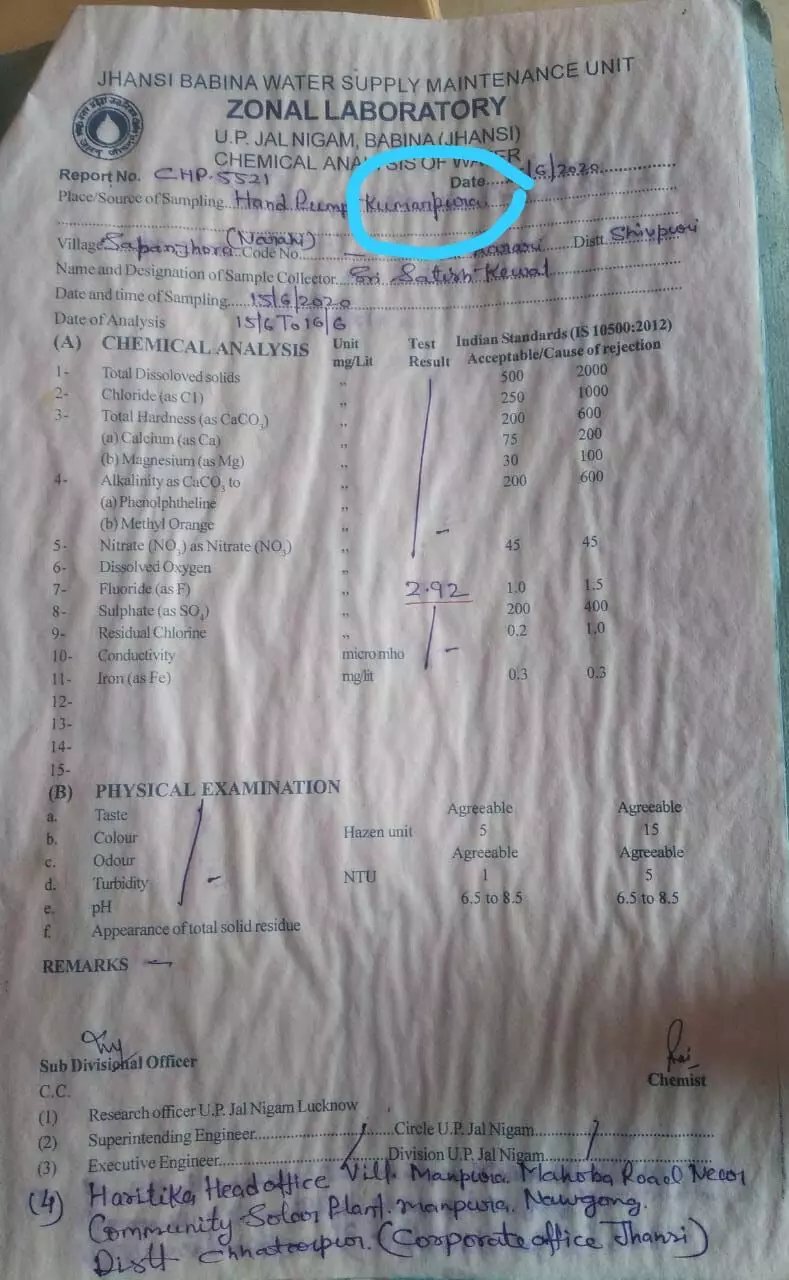 JHANSI BABINA WATER SUPPLY MAINTENANCE UNIT
ZONAL LABORATORY
U.P. JAL NIGAM, BABINA (JHANSI)
CHEMICAL ANALYSIS OF WATER
Report No. CHP-5521 Date..... /6/2020
Place/Source of Sampling Hand Pump Kumanpura
Village Sapanghora (Narahi) Code No. — Distt. Shivpuri
Name and Designation of Sample Collector Sri Satish Kewat
Date and time of Sampling 15/6/2020
Date of Analysis 15/6 To 16/6
(A) CHEMICAL ANALYSIS Unit mg/Lit Test Result Indian Standards (IS 10500:2012) Acceptable/Cause of rejection
1- Total Dissoloved solids ,, 500 2000
2- Chloride (as C1) ,, 250 1000
3- Total Hardness (as CaCO₃) ,, 200 600
(a) Calcium (as Ca) ,, 75 200
(b) Magnesium (as Mg) ,, 30 100
4- Alkalinity as CaCO₃ to ,, 200 600
(a) Phenolphtheline ,,
(b) Methyl Orange ,,
5- Nitrate (NO₃) as Nitrate (NO₃) ,, 45 45
6- Dissolved Oxygen ,,
7- Fluoride (as F) ,, 2.92 1.0 1.5
8- Sulphate (as SO₄) ,, 200 400
9- Residual Chlorine ,, 0.2 1.0
10- Conductivity micro mho
11- Iron (as Fe) mg/lit 0.3 0.3
12-
13-
14-
15-
(B) PHYSICAL EXAMINATION
a. Taste Agreeable Agreeable
b. Colour Hazen unit 5 15
c. Odour Agreeable Agreeable
d. Turbidity NTU 1 5
e. pH 6.5 to 8.5 6.5 to 8.5
f. Appearance of total solid residue
REMARKS —
Sub Divisional Officer
Chemist
C.C.
(1) Research officer U.P. Jal Nigam Lucknow
(2) Superintending Engineer Circle U.P. Jal Nigam
(3) Executive Engineer Division U.P. Jal Nigam
(4) Haritika Head office Vill. Manpura Mahoba Road Near
Community Solar Plant. manpura. Nawgong.
Distt Chhatarpur. (Corporate office Jhansi)